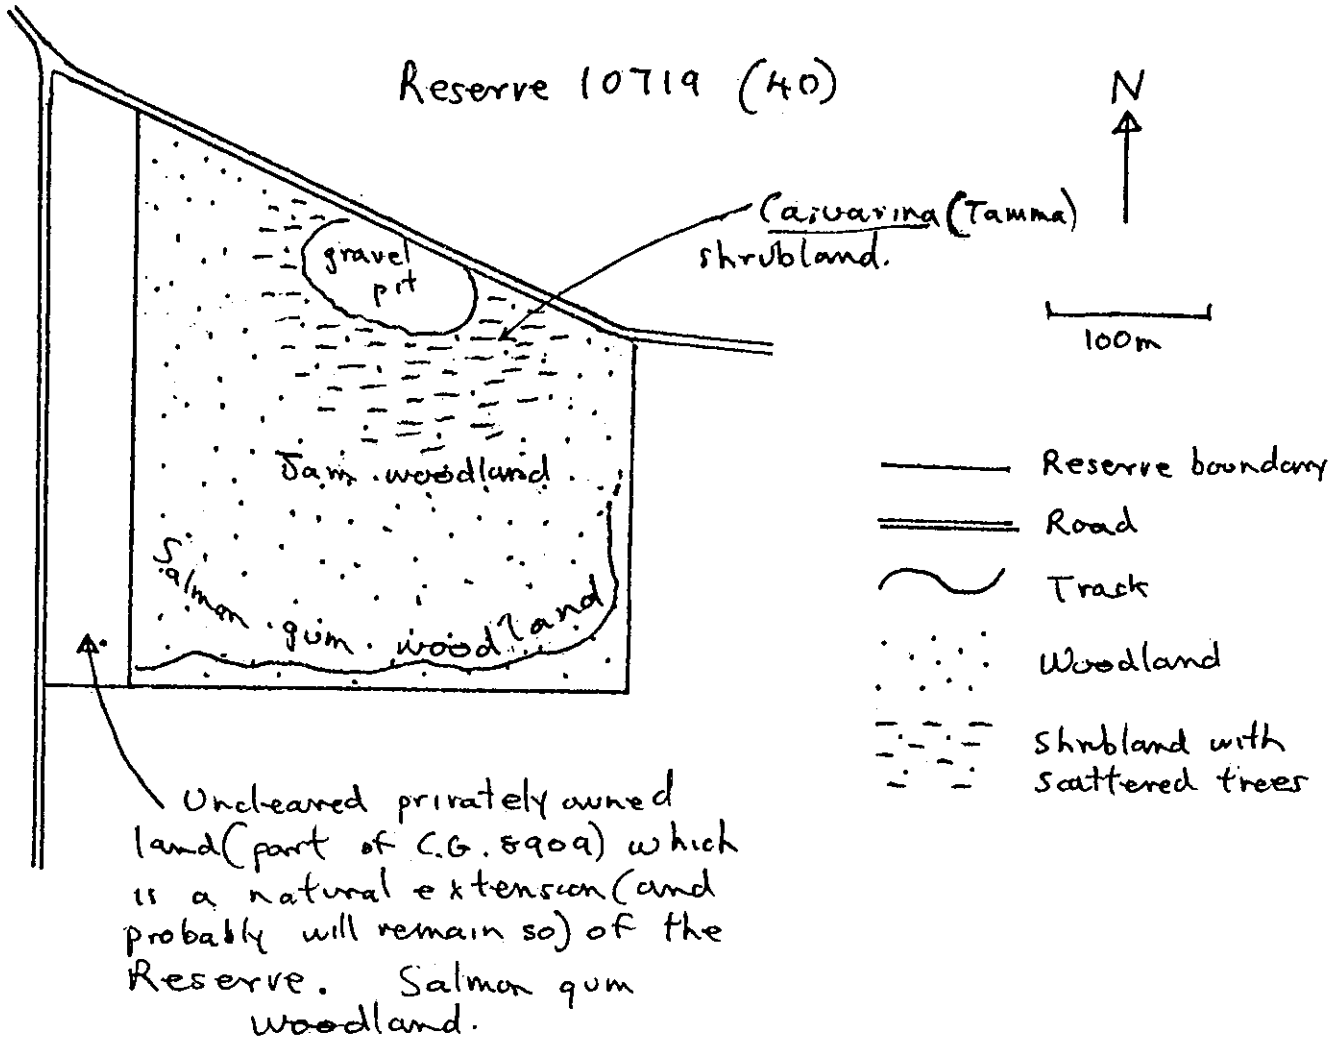 Reserve 10719 (40)
N
Casuarina (Tamma)
shrubland.
gravel
pit
100m
Jam woodland
Salmon gum woodland
Reserve boundary
Road
Track
Woodland
Shrubland with
scattered trees
Uncleared privately owned
land (part of C.G. 8909) which
is a natural extension (and
probably will remain so) of the
Reserve. Salmon gum
woodland.